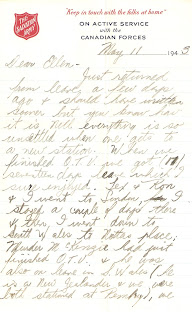 "Keep in touch with the folks at home"
THE SALVATION ARMY
ON ACTIVE SERVICE
with the
CANADIAN FORCES
May 11 1943
Dear Ellen-
Just returned
from leave a few days
ago & should have written
sooner but you know how
it is. Well everything is so
unsettled when one gets to
a new station. When we
finished O.T.U. we got (17)
seventeen days leave which I
sure enjoyed. & Ron
& I went to London. I
stayed a couple of days there
& then I went down to
South Wales to place;
M had just
finished O.T.U. & he was
also on leave in S. Wales (he
is a New Zealander & we were
both stationed at ) we